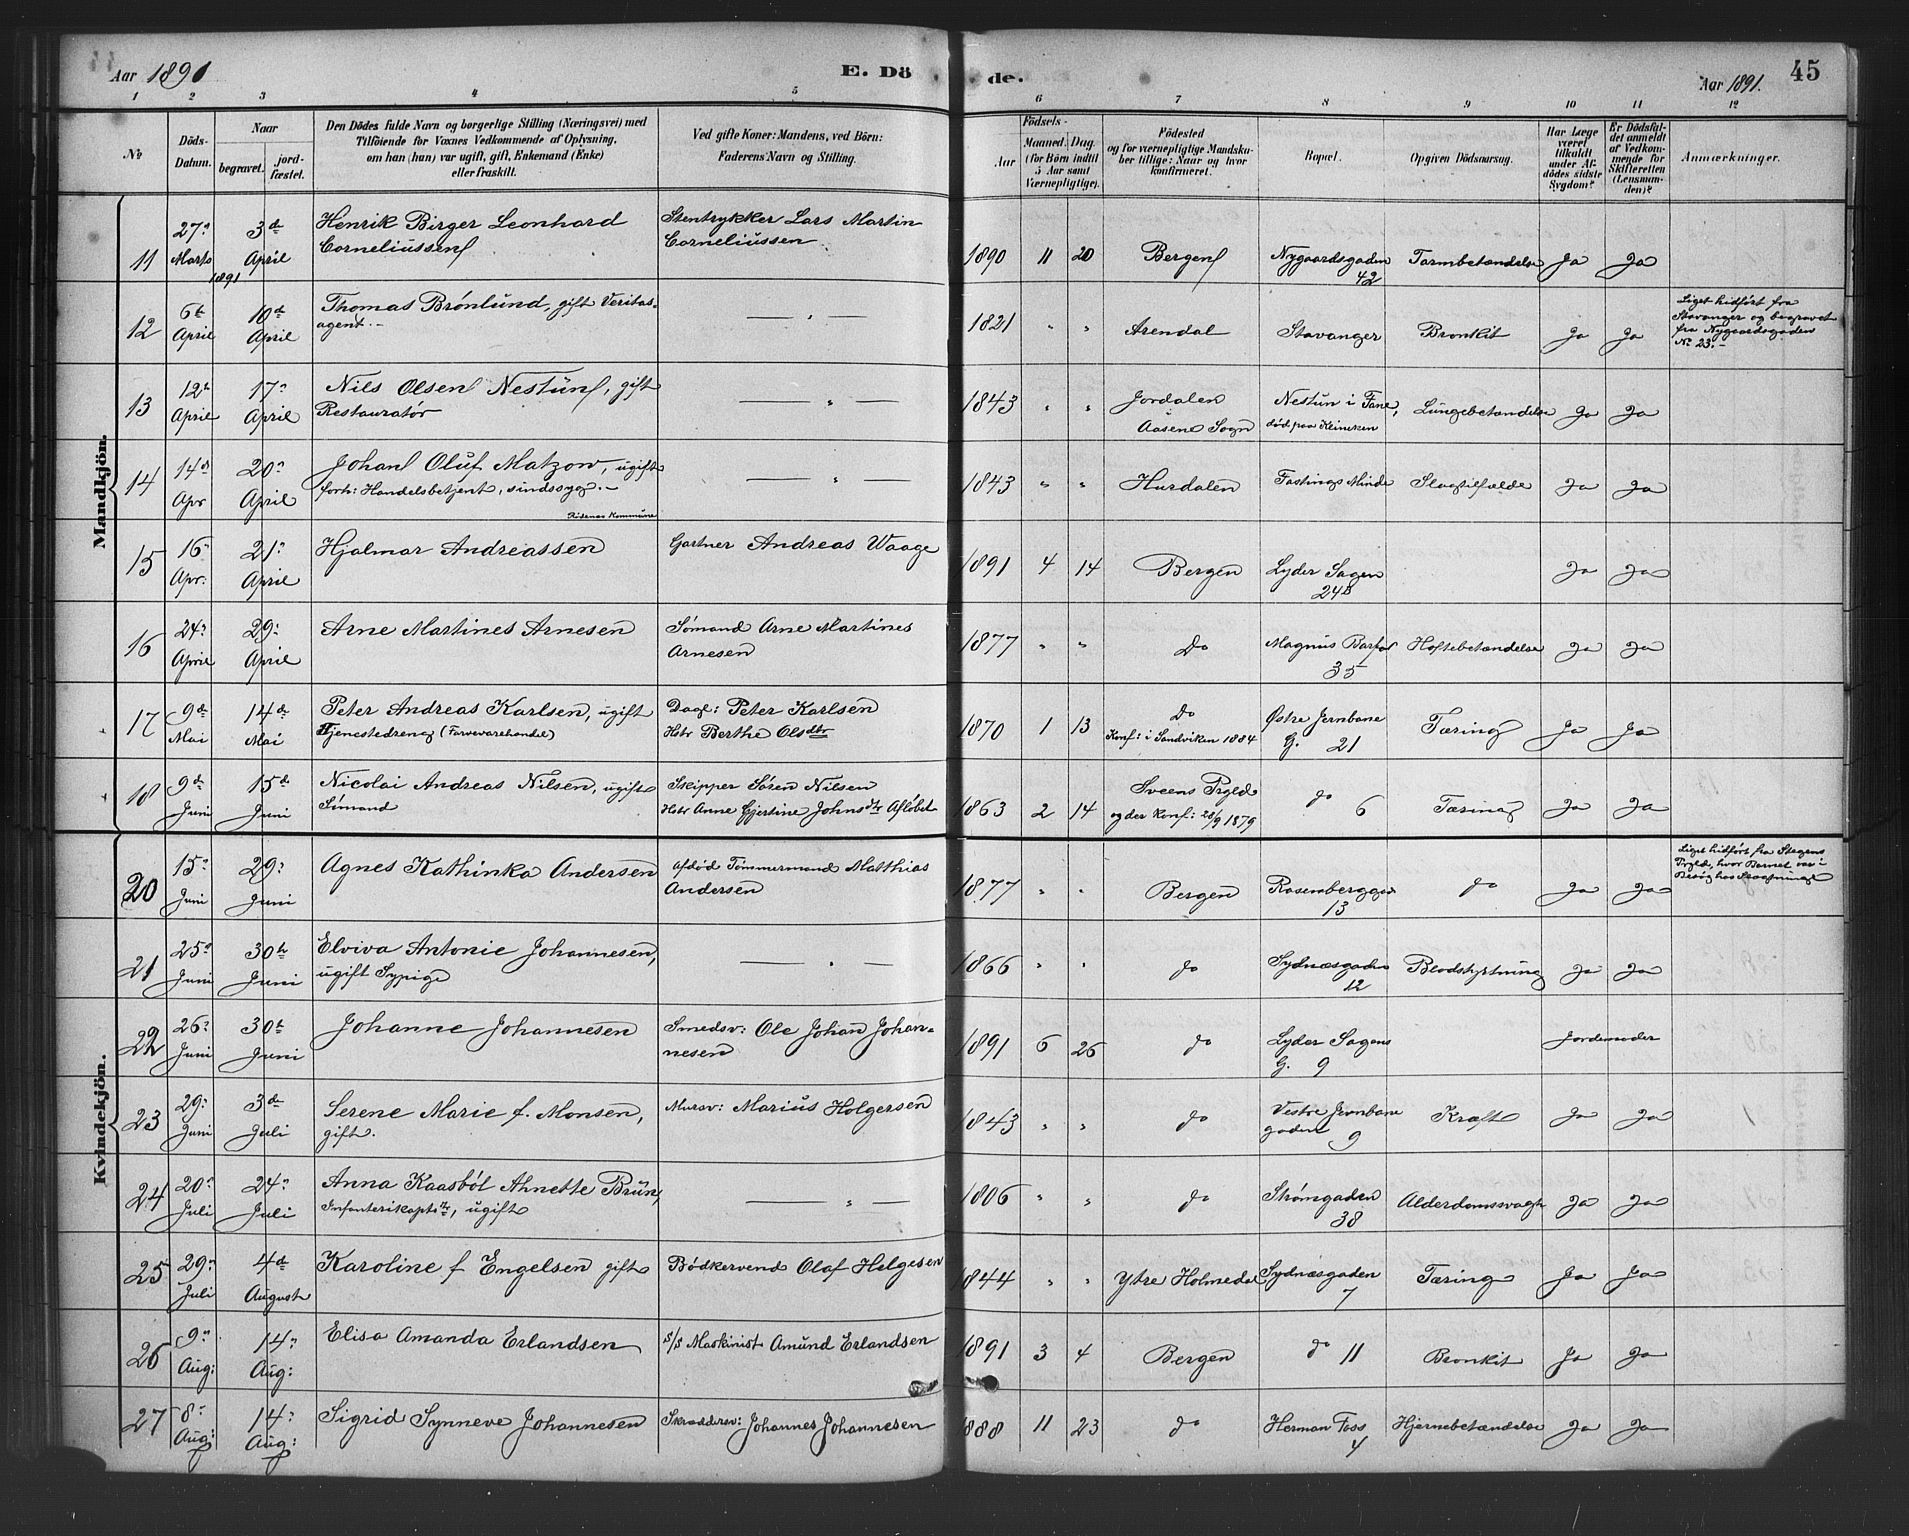 Aar 1891
E. Dö
de.
45
Aar 1891.
1 2 3 4 5 6 7 8 9 10 11 12
No
Döds-Datum.
Naar
begravet.
jordfæstet.
Den Dödes fulde Navn og borgerlige Stilling (Næringsvei) med
Tilföiende for Voxnes Vedkommende af Oplysning,
om han (hun) var ugift, gift, Enkemand (Enke)
eller fraskilt.
Ved gifte Koner: Mandens, ved Börn:
Faderens Navn og Stilling.
Födsels-
Aar
Maaned. Dag.
(for Börn indtil
5 Aar samt
Værnepligtige).
Födested
og for værnepligtige Mandskaber tillige: Naar og hvor
konfirmeret.
Bopæl.
Opgiven Dödsaarsag.
Har Læge
været
tilkaldt
under Afdödes sidste
Sygdom?
Er Dödsfaldet anmeldt
af Vedkommende for
Skifteretten
(Lensmanden)?
Anmærkninger.
Mandkjön.
11 27de Marts 1891 3de April Henrik Birger Leonhard Corneliussen Stentrykker Lars Martin Corneliussen 1890 11 20 Bergen Nygaardsgaden 42 Tarmbetændelse Ja Ja
12 6te April 10de April Thomas Brönlund, gift Veritasagent.- — " — 1821 " " Arendal Stavanger Bronkit Ja Ja Liget hidført fra Stavanger og begravet fra Nygaardsgaden No 23.-
13 12te April 17de April Nils Olsen Nestun, gift Restauratør — " — 1843 " " Jordalen Aasene Sogn Nestun i Fane, död paa Kliniken Lungebetændelse Ja Ja
14 14de Apr 20de April Johan Oluf Matzow, ugift forh: Handelsbetjent, sindssyg.- Kommune — " — 1843 " " Hurdalen Fastings Minde Slagtilfælde Ja Ja
15 16de Apr: 21de April Hjalmar Andreassen Gartner Andreas Waage 1891 4 14 Bergen Lyder Sagen 24B Ja Ja
16 24de April 29de April Arne Martines Arnesen Sömand Arne Martines Arnesen 1877 " " Do Magnus Barfod 35 Hoftebetændelse Ja Ja
17 9de Mai 14de Mai Peter Andreas Karlsen, ugift Tjenestedreng (Farvevarehandel) Dagl: Peter Karlsen Hstr Berthe Olsdtr 1870 1 13 Do Konf: i Sandviken 1884 Østre Jernbane G. 21 Tæring Ja Ja
18 9de Juni 15de Juni Nicolai Andreas Nilsen, ugift Sömand Skipper Sören Nilsen Hstr Anne Gjertine Johnsdtr Aflöbet 1863 2 14 Sveens Prgld og der Konf: 28/9 1879 do 6 Tæring Ja Ja
Kvindekjön.
20 15de Juni 29de Juni Agnes Kathinka Andersen Afdöd Tömmermand Matthias Andersen 1877 " " Bergen Rosenberggd 13 do Ja Ja Liget hidført fra Prgld, hvor Barnet var i Besøg hos
21 25de Juni 30te Juni Elviva Antonie Johannesen, ugift Sypige — " — 1866 " " do Sydnæsgaden 12 Blodstyrtning Ja Ja
22 26de Juni 30te Juni Johanne Johannesen Smedsv: Ole Johan Johannesen 1891 6 26 do Lyder Sagens G. 9 Jordemoder
23 29de Juni 3de Juli Serene Marie f. Monsen, gift. Mursv: Marius Holgersen 1843 " " do Vestre Jernbane gaden 9 Kræft Ja Ja
24 20de Juli 24de Juli Anna Kaasböl Ahnette Brun, Infanterikaptsdtr, ugift — " — 1806 " " do Strømgaden 38 Alderdomssvagh Ja Ja
25 29de Juli 4de August Karoline f Engelsen gift Bödkersvend Olaf Helgesen 1844 " " Ytre Holmedal Sydnæsgaden 7 Tæring Ja Ja
26 9de Aug: 14de Aug: Elisa Amanda Erlandsen S/S Maskinist Amund Erlandsen 1891 3 4 Bergen do 11 Bronkit Ja Ja
27 8de Aug: 14de Aug: Sigrid Synneve Johannesen Skræddersv: Johannes Johannesen 1888 11 23 do Herman Foss 4 Hjernebetændelse Ja Ja